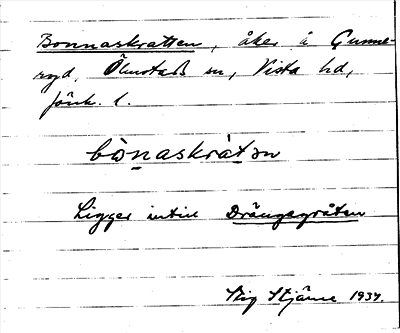 Bonnaskratten, åker å Gunne-
ryd, Ölmstads sn, Vista hd,
Jönk. l.
bònaskràtən
Ligger intill Drängagråten
Stig Stjärne 1934.